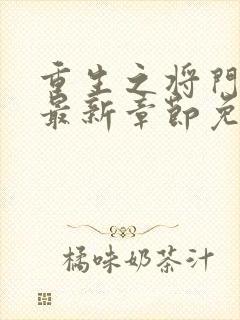 重生之将门
最新章节免
橘味奶茶汁